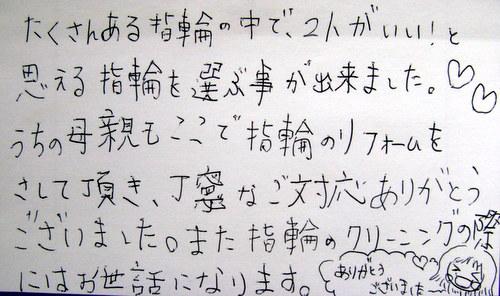 たくさんある指輪の中で、2人がいい!と
思える指輪を選ぶ事が出来ました。♡♡
うちの母親もここで指輪のリフォームを
さして頂き、丁寧なご対応ありがとう
ございました。また指輪のクリーニングの際
にはお世話になります。
ありがとう
ございましたー